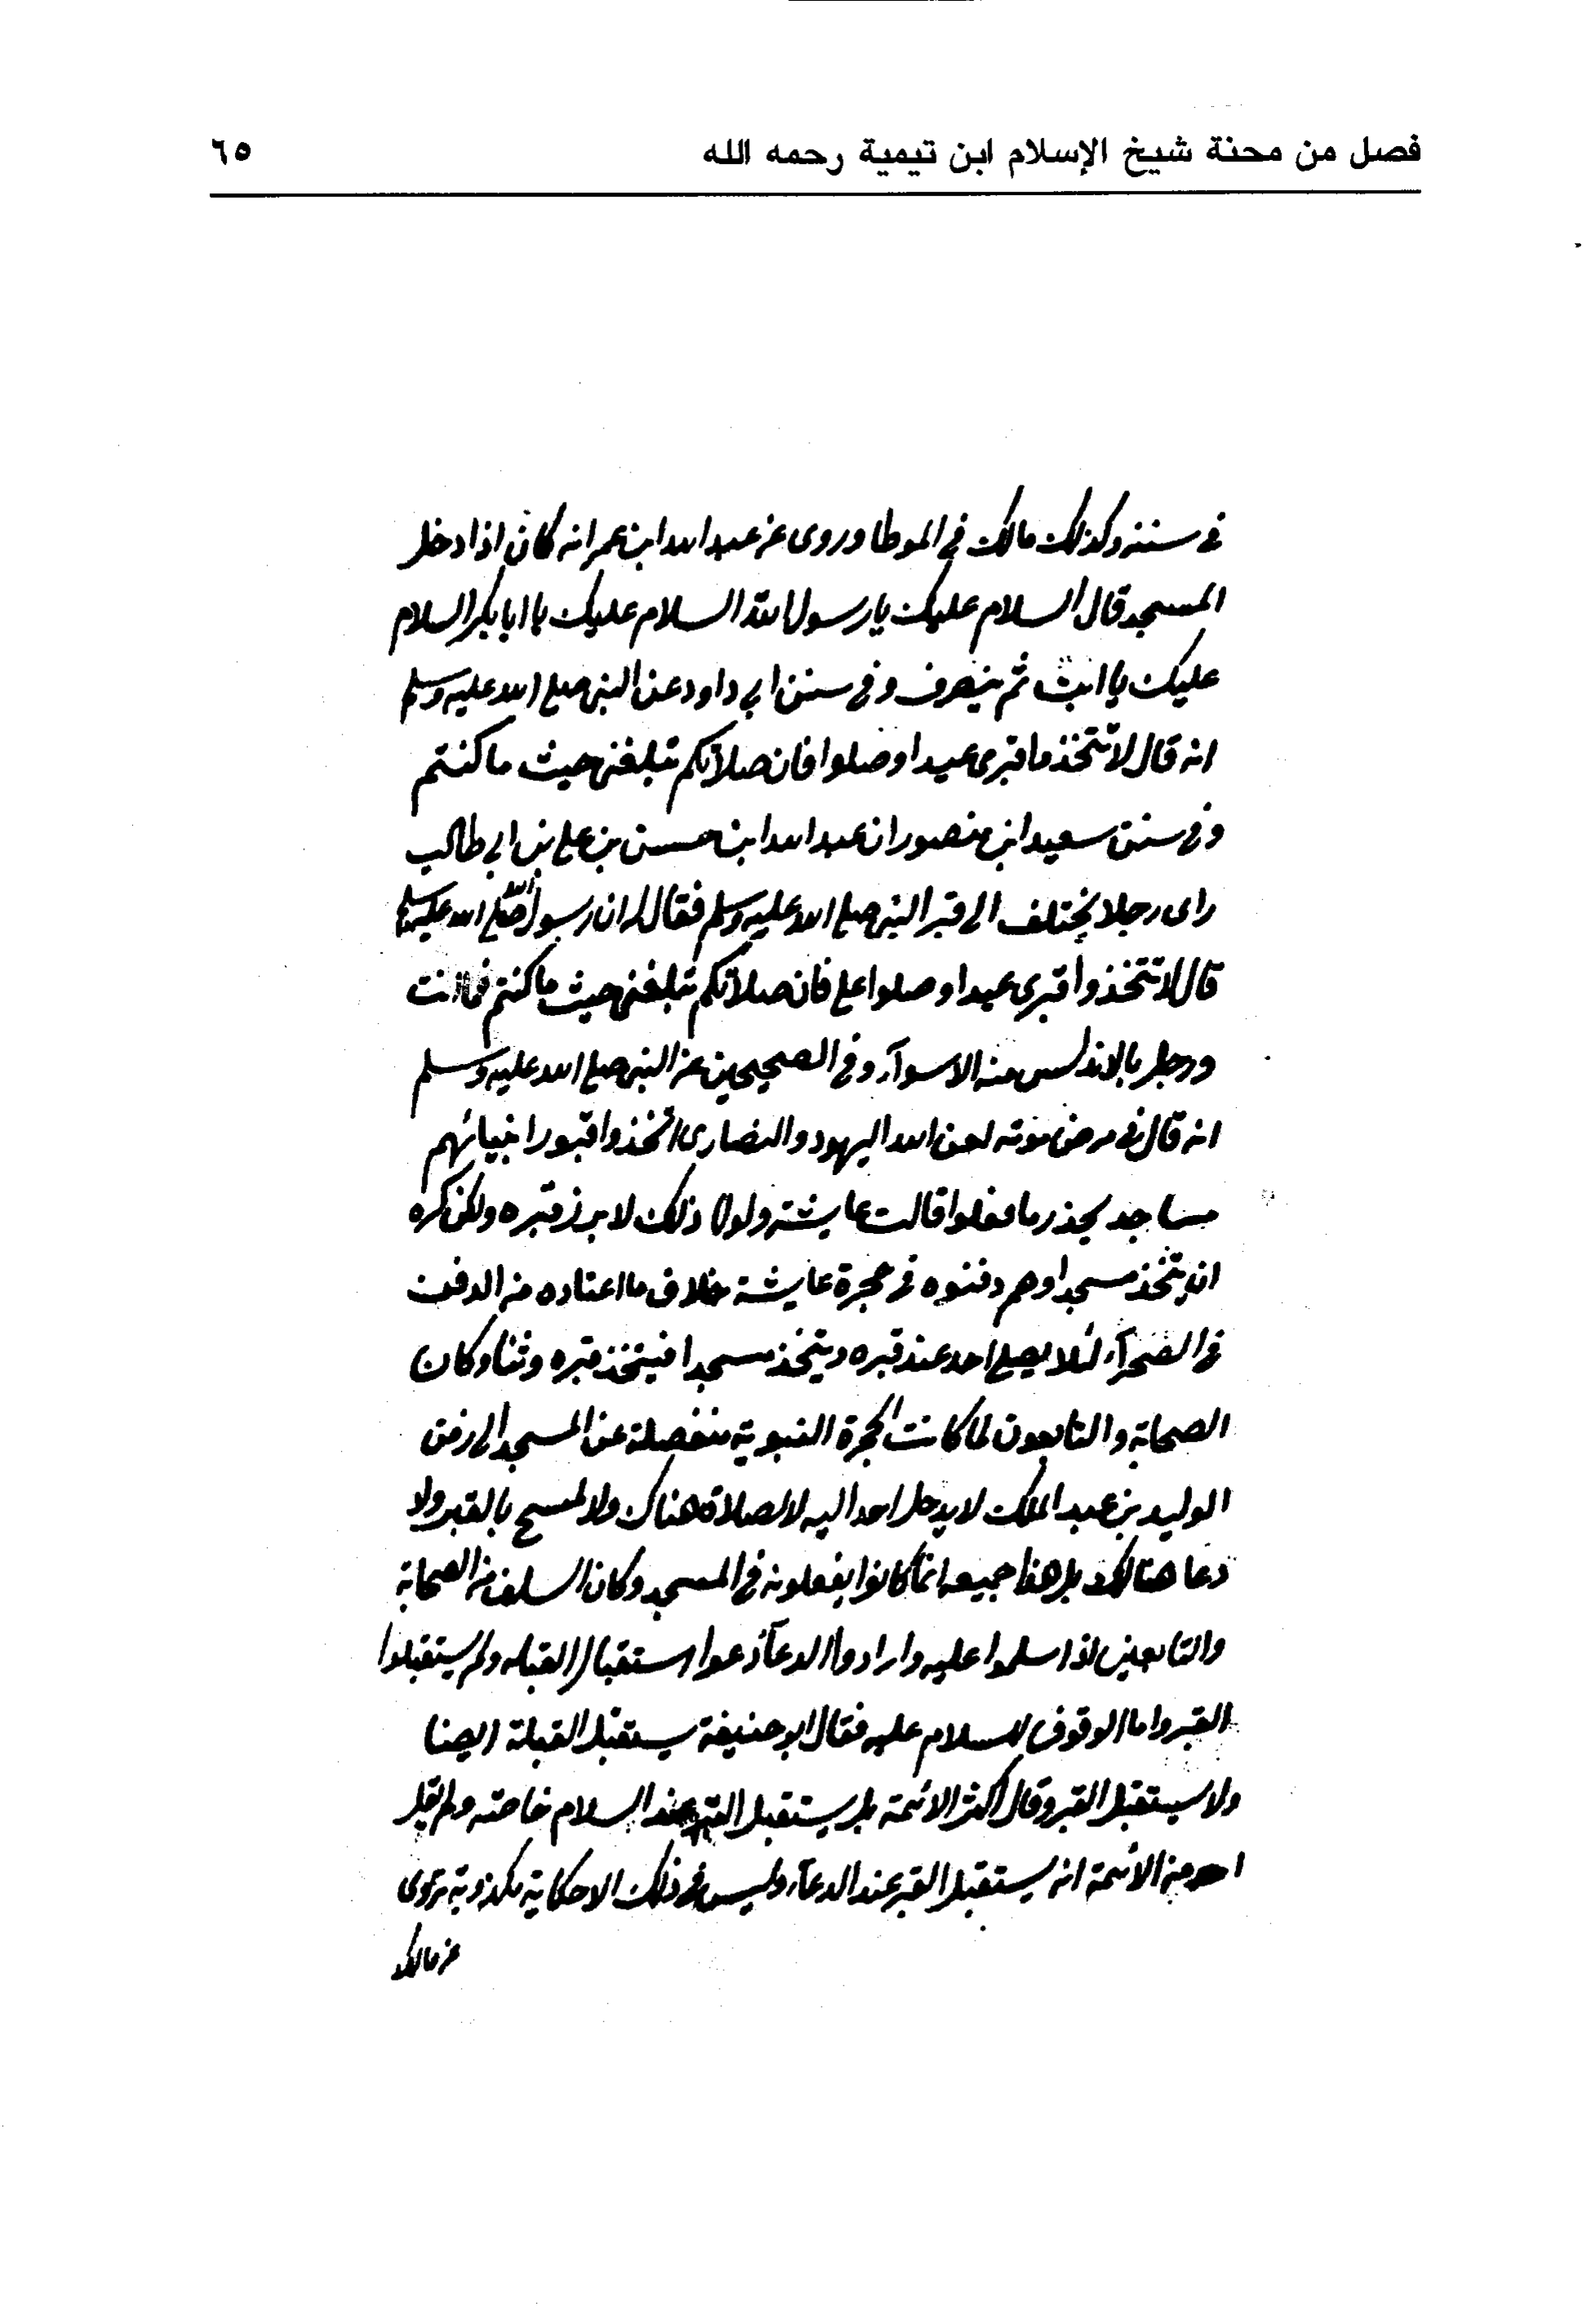 فصل من محنة شيخ الإسلام ابن تيمية رحمه الله ٦٥
في سننه وكذلك مالك في الموطا وروى عن عبد الله ابن عمر انه كان اذا دخل
المسجد قال السلام عليك يا رسول الله السلام عليك يا ابا بكر السلام
عليك يا ابت ثم ينصرف وفي سنن ابي داود عن النبي صلى الله عليه وسلم
انه قال لا تتخذوا قبري عيدا وصلوا فان صلاتكم تبلغني حيث ما كنتم
وفي سنن سعيد ابن منصور ان عبد الله ابن حسن بن علي بن ابي طالب
راى رجلا يختلف الى قبر النبي صلى الله عليه وسلم فقال له ان رسول الله صلى الله عليه وسلم
قال لا تتخذوا قبري عيدا وصلوا علي فان صلاتكم تبلغني حيث ما كنتم فما انت
ورجل بالاندلس منه الا سوآء وفي الصحيحين عن النبي صلى الله عليه وسلم
انه قال في مرض موته لعن الله اليهود والنصارى اتخذوا قبور انبيائهم
مساجد يحذر ما فعلوا قالت عايشة ولولا ذلك لابرز قبره ولكن كره
ان يتخذ مسجدا وهم دفنوه في حجرة عايشة خلاف ما اعتاده من الدفن
في الصحرآء لئلا يصلي احد عند قبره ويتخذ مسجدا فيتخذ قبره وثنا وكان
الصحابة والتابعون لما كانت الحجرة النبوية منفصلة عن المسجد الى زمن
الوليد بن عبد الملك لا يدخل احد اليه لا لصلاة هناك ولا لمسح بالقبر ولا
دعا هنالك بل هذا جميعه انما كانوا يفعلونه في المسجد وكان السلف من الصحابة
والتابعين اذا سلموا عليه وارادوا الدعآ دعوا استقبال القبله ولم يستقبلوا
القبر واما الوقوف للسلام عليه فقال ابو حنيفة يستقبل القبلة ايضا
ولا يستقبل القبر وقال اكثر الائمة بل يستقبل القبر عند السلام خاصته ولم يقل
احد من الائمة انه يستقبل القبر عند الدعآء وليس في ذلك الا حكاية مكذوبة تروى
عن مالك